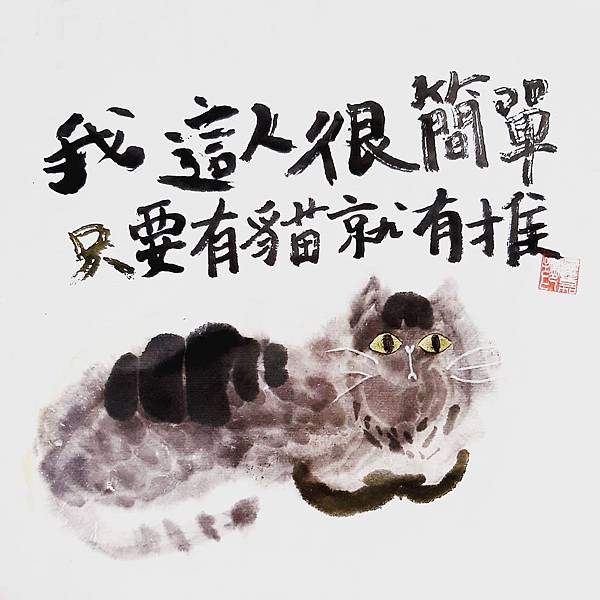 我這人很簡單
只要有貓就有推